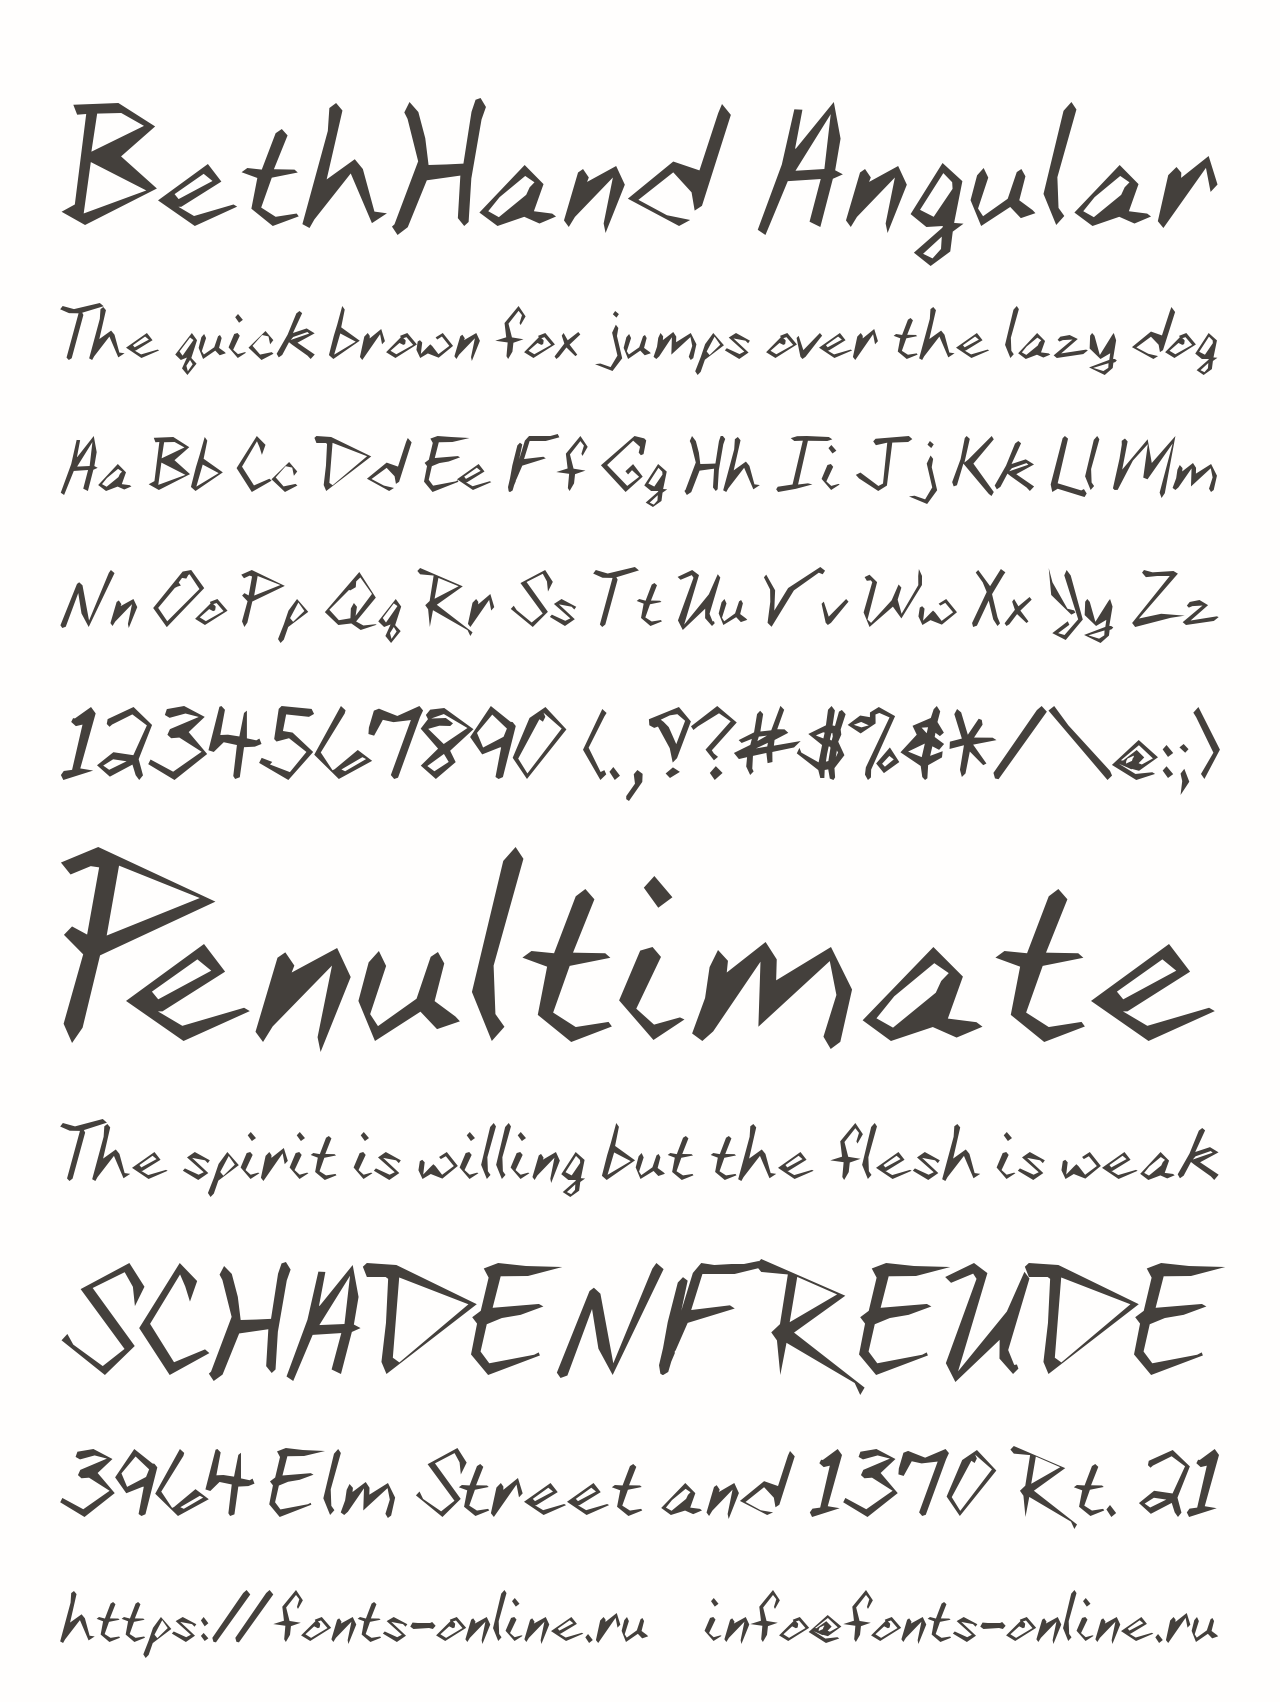 BethHand Angular
The quick brown fox jumps over the lazy dog
Aa Bb Cc Dd Ee Ff Gg Hh Ii Jj Kk Ll Mm
Nn Oo Pp Qq Rr Ss Tt Uu Vv Ww Xx Yy Zz
1234567890 (.,!?#$%&*/\@:;)
Penultimate
The spirit is willing but the flesh is weak
SCHADENFREUDE
3964 Elm Street and 1370 Rt. 21
https://fonts-online.ru info@fonts-online.ru